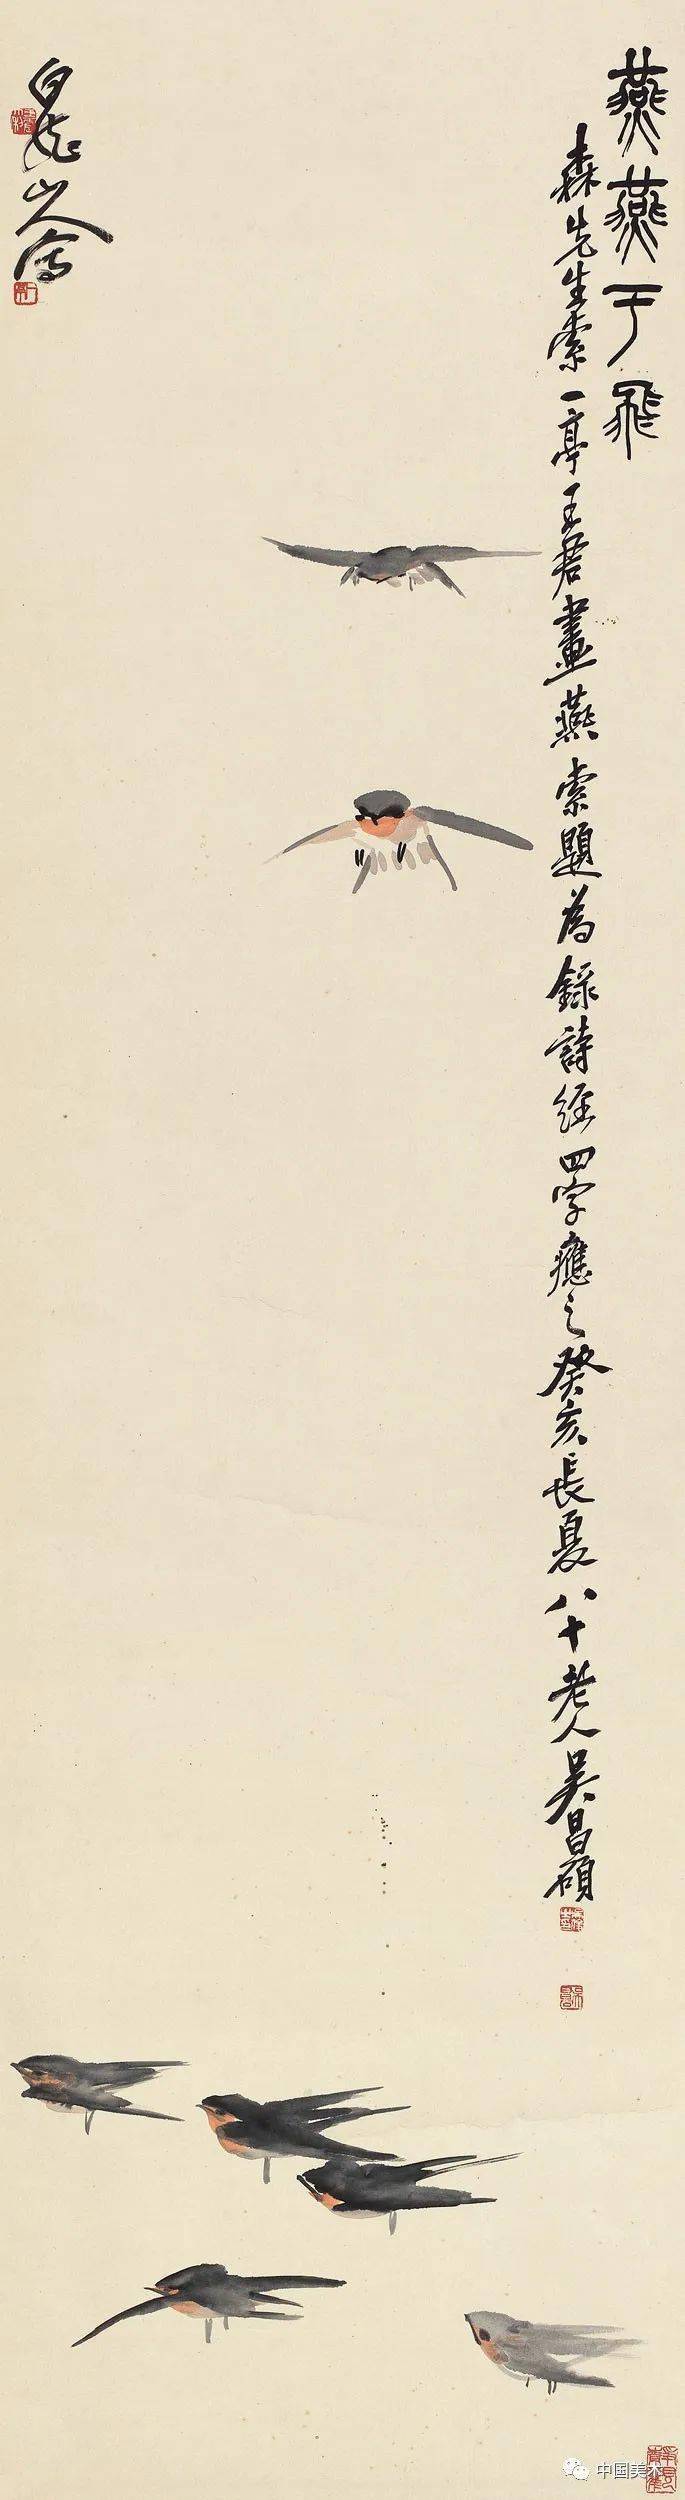 燕燕于飛
森先生索一亭王君畫燕索題為錄詩經四字應之癸亥長夏八十老人吳昌碩
白龍山人寫
中国美术